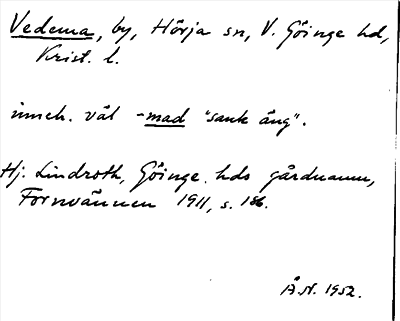 Vedema, by, Hörja sn, V. Göinge hd,
Krist. l.
inneh. väl -mad "sank äng".
Hj. Lindroth, Göinge hds gårdnamn,
Fornvännen 1911, s. 186.
Å.N. 1952.